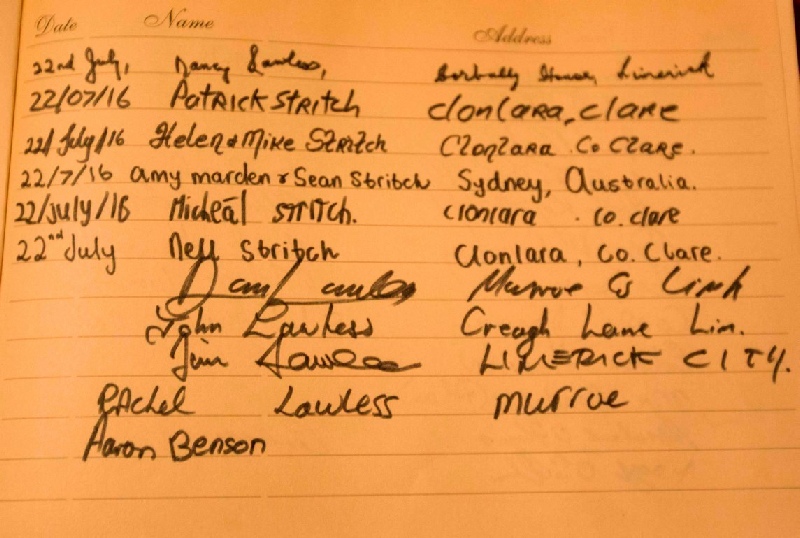 Date Name Address
22nd July, Nancy Lawless, Corbally House, Limerick
22/07/16 PATRICK STRITCH Clonlara, Clare
22/July/16 Helen & Mike Stritch Clonlara Co Clare.
22/7/16 amy marden & Sean Stritch Sydney, Australia.
22/July/16 Micheál STRITCH. Clonlara . Co. clare
22nd July Nell Stritch Clonlara, Co. Clare.
Murroe Co Limk
John Lawless Creagh Lane Lim.
Jim Lawless LIMERICK CITY.
RAchel Lawless Murroe
Aaron Benson